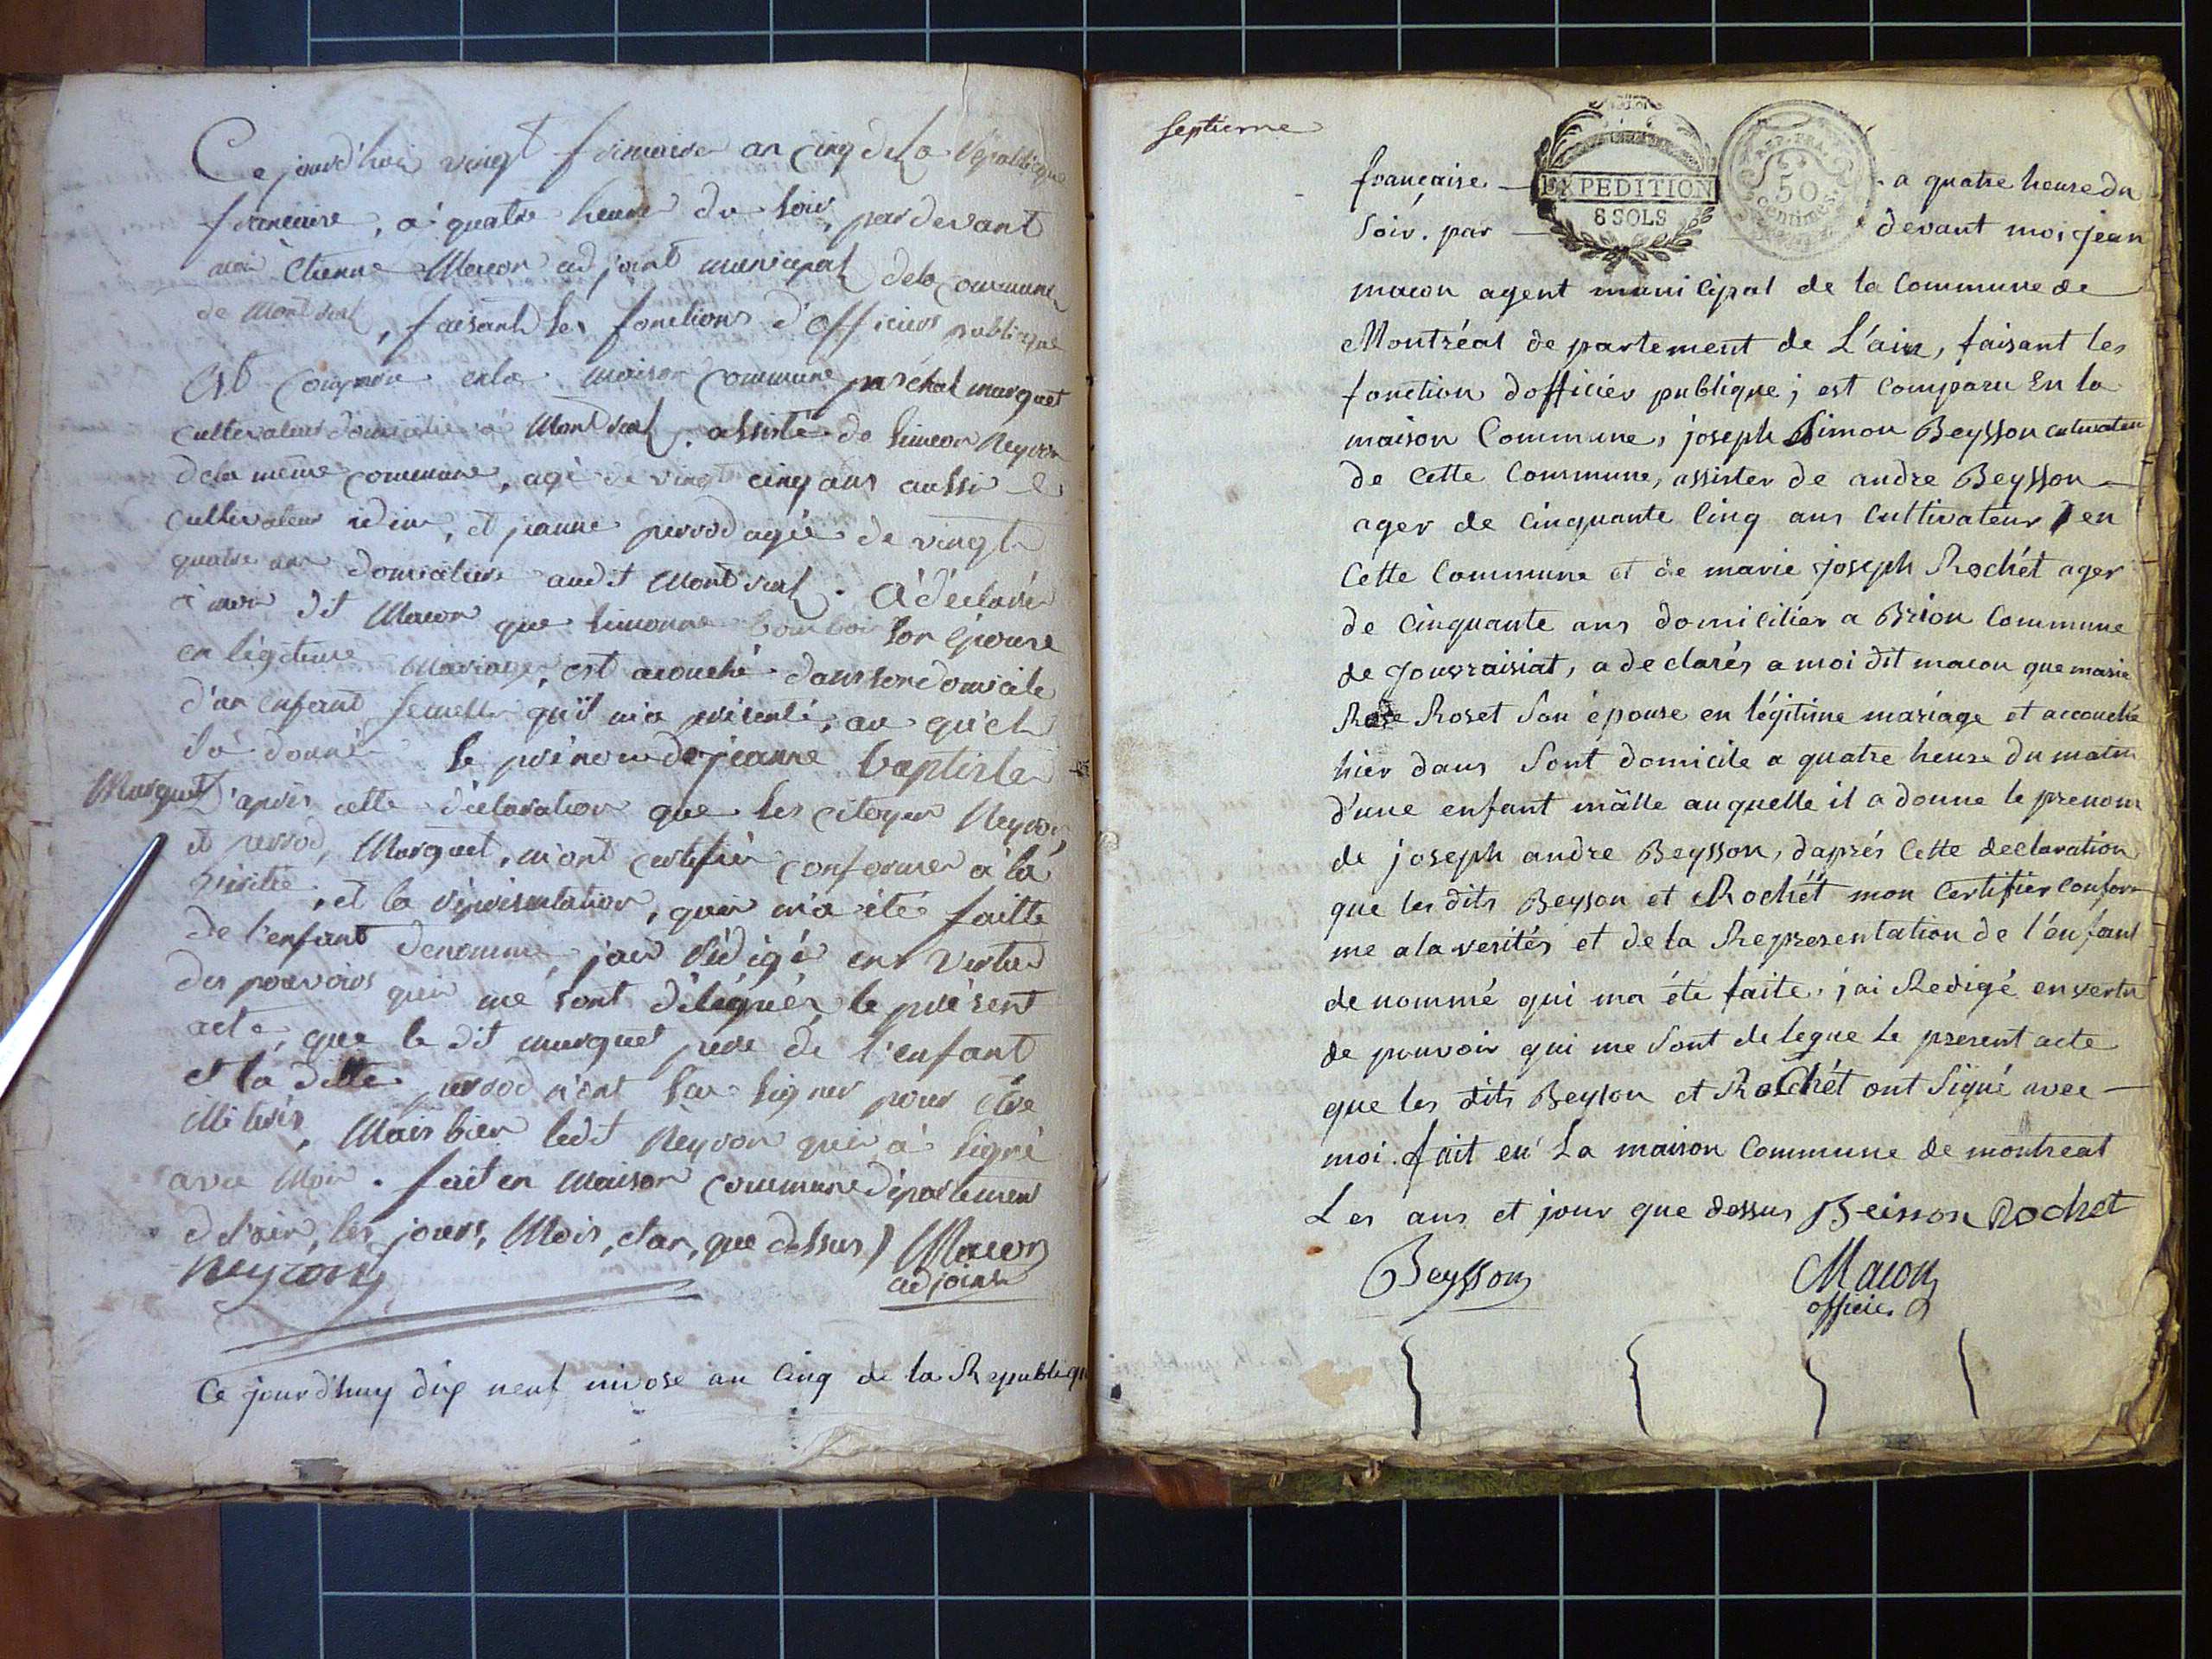 Ce jourd'hui vingt frimaire an cinq de la Republique
francaise, a quatre heure du soir, par devant
moi Etienne Macon adjoint municipal dela commune
de Montreal, faisant les fonctions d'officier publique
Est comparu en la maison commune paschal marquet
cultivateur domicilié à Montreal. assisté de Simeon Neyron
dela même commune, agé de vingt cinq ans aussi
cultivateur idem, et jeanne perrod agée de vingt
quatre ans domiciliée audit Montreal. à déclaré
à moi dit Macon que simonne son épouse
en légitime Mariage, est acouché dans son domicile
d'un enfant femelle qu'il m'a présenté, au quel
il a donné le prénom de jeanne baptiste
Marquet d'après cette déclaration que les citoyen Neyron
et perrod, Marquet, m'ont certifié conforme à la
vérité, et la représentation, qui m'a été faitte
de l'enfant denommé, jai rédigé en vertu
des pouvoirs qui me sont délégués, le présent
acte, que le dit marquet pere de l'enfant
et la ditte perrod n'ont su signer pour être
illiterés, Mais bien ledit Neyron qui à signé
avec Moi. fait en Maison commune département
de l'ain, les jours, Mois, et an, que dessus Macon
Neyron adjoint
Ce jourd'huy dix neuf nivose an cinq de la Republique
septieme
française EXPEDITION 8 SOLS REP. FRA. 50 centimes a quatre heure du
soir. par devant moi jean
macon agent municipal de la Commune de
Montréal de partement de L'ain, faisant les
fonction dofficier publique; est Comparu En la
maison Commune, joseph Simon Beysson cultivateur
de Cette Commune, assister de andre Beysson
ager de Cinquante Cinq ans Cultivateur en
Cette Commune et de marie joseph Rochét ager
de Cinquante ans domicilier a Brion Commune
de Jouvraisiat, a declarés a moi dit macon que marie
Rose Roset son épouse en légitime mariage et accouchée
hier dans sont domicile a quatre heure du matin
d'une enfant mâlle auquelle il a donne le prenom
de joseph andre Beysson, daprés Cette declaration
que les dits Beyson et Rochét mon Certifier Confor
me a la verités et de la Representation de l'énfant
de nommé qui ma éte faite, jai Redigé en vertu
de pouvoir qui me sont delegue Le present acte
que les dits Beyson et Rochét ont Signé avec
moi. fait en La maison Commune de montreal
Les ans et jour que dessus Beisson Rochet
Beysson Macon
officier